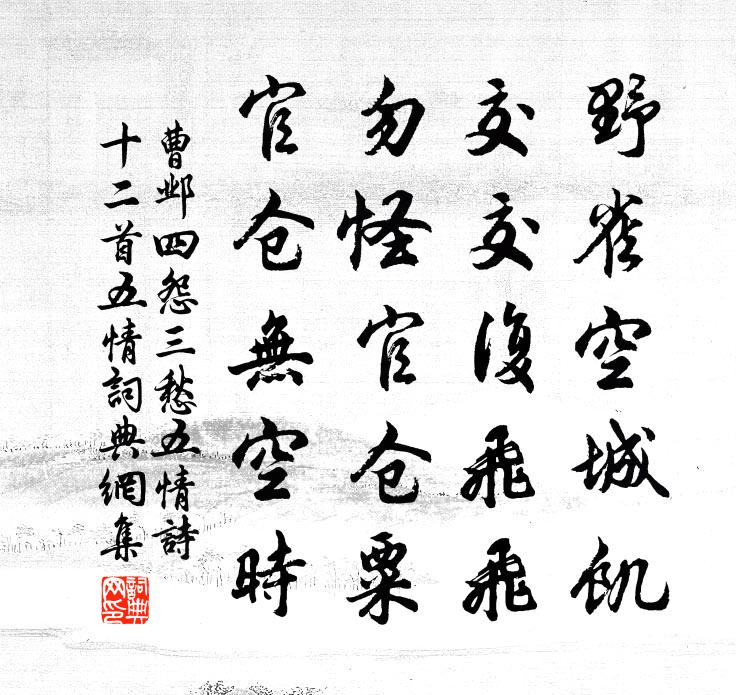 野雀空城飢
交交復飛飛
勿怪官仓粟
官仓無空時
曹邺四怨三愁五情詩
十二首五情詞典網集
詞典